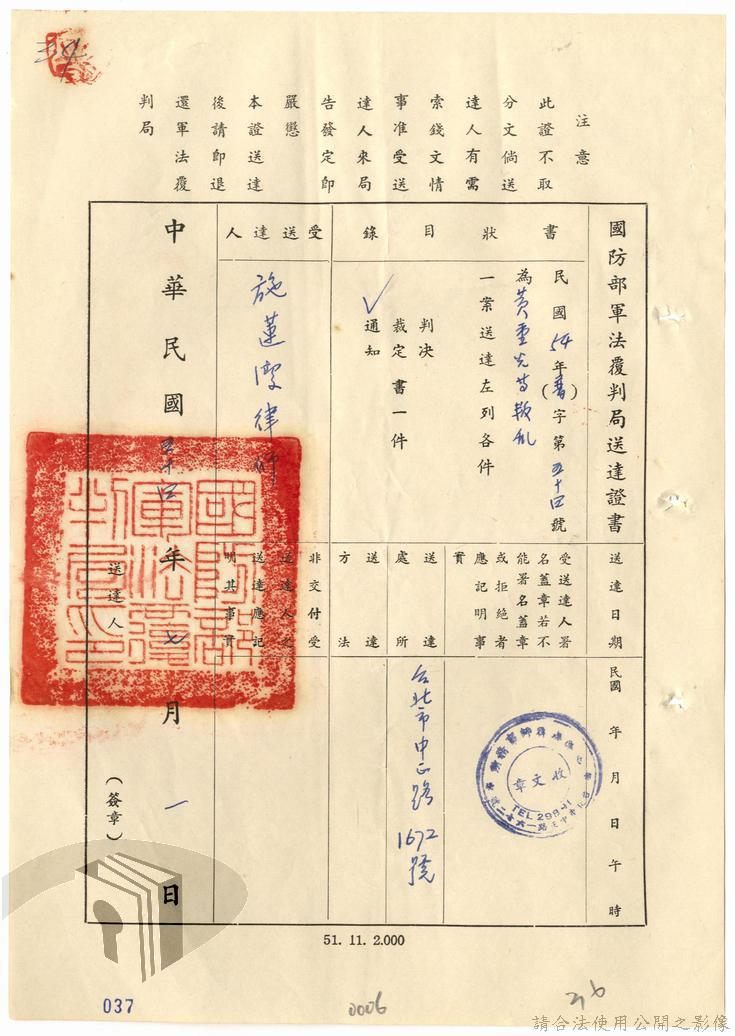 注意
此證不取
分文倘送
達人有需
索錢文情
事准受送
達人來局
告發定即
嚴懲
本證送達
後請即退
還軍法覆
判局
國防部軍法覆判局送達證書
送達日期
民國 年 月 日 午 時
書狀目錄
民國54年(書)字第五十四號
為黃重光等叛乱
一案送達左列各件
判決
裁定書一件
✓通知
受送達人署
名蓋章若不
能署名蓋章
或拒絕者
應記明事
實
收文章
TEL 29841
送達處所
台北市中正路1672號
送達方法
受送達人
施蓮潭律師
非交付受
送達人之
送達應記
明其事實
國防部軍法覆判局印
中華民國五十四年七月一日
送達人
(簽章)
51. 11. 2.000
037
0006
36
請合法使用公開之影像